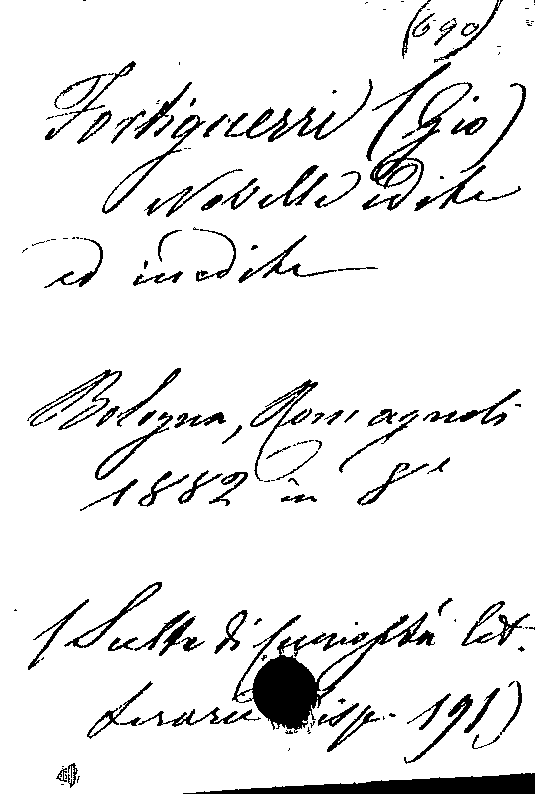 (690)
Fortiguerri (Gio)
Novelle edite
ed inedite
Bologna, Romagnoli
1882 in 8°
(Scelta di Curiosità let.
terarie Disp. 191)